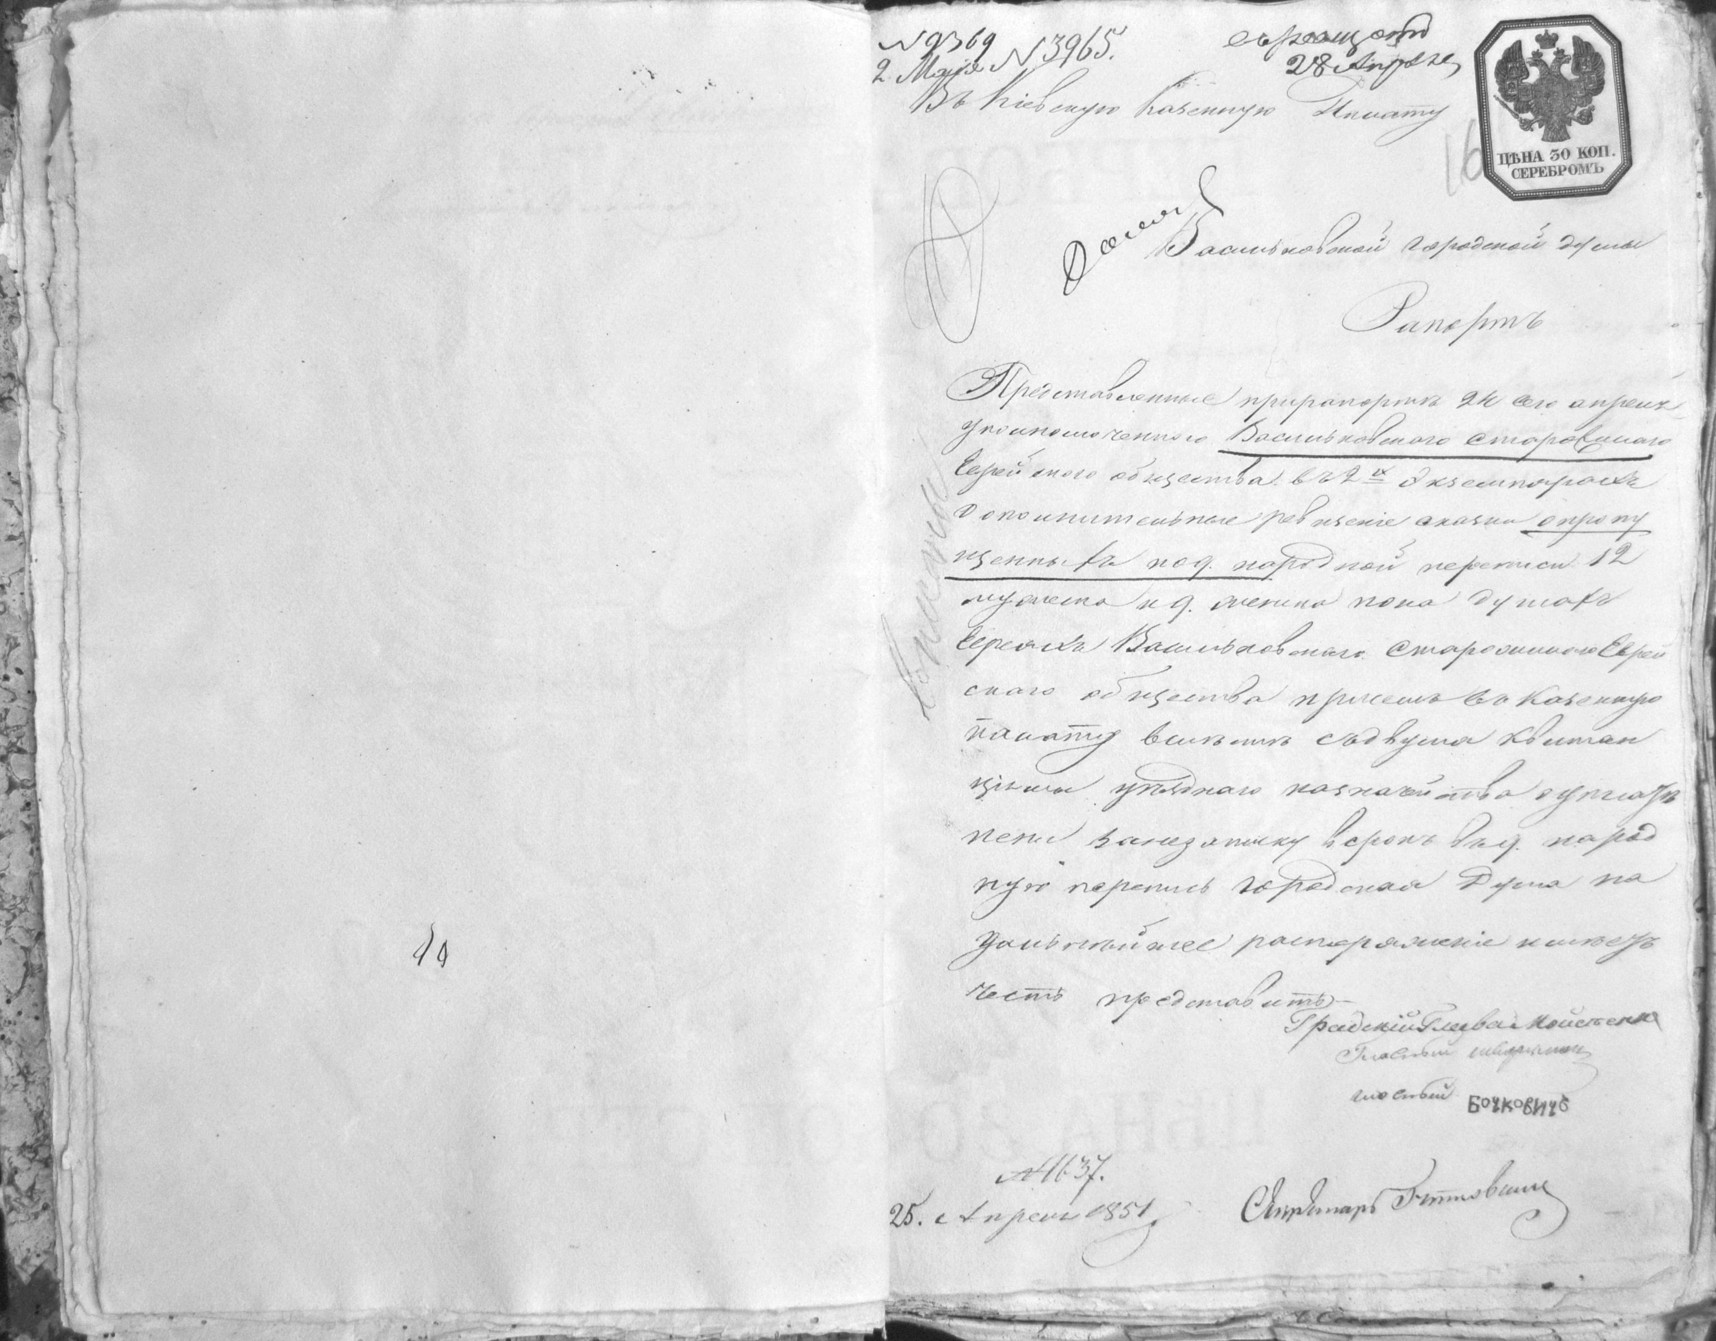 N 9369
2 Мая N 3965.
28 Апреля
Въ Кіевскую Казенную Палату
16
ЦѢНА 30 КОП.
СЕРЕБРОМЪ
Васильковской городской думы
Рапортъ
Представленные прирапортѣ 24 сего апреля
уполномоченнаго Васильковскаго старовшаго
Еврейскаго общества въ 2х Экземплярахъ
дополнительные ревизскіе сказки опропу
щенныхъ по 9. народной переписи 12
мужеска и 9. женска пола душахъ
Евреяхъ Васильковскаго Старожилаго Еврей
скаго общества
въ Казенную
палату вмѣстѣ съдвумя Квитан
ціями уѣзднаго казначейства
пени занезаписку всрокъ въ 9. народ
ную перепись городская Дума на
дальнѣйшее распоряженіе имѣетъ
честь представить
Градскій Глава
Гласный
гласный Бочковичъ
N 1637.
25. Апреля 1851
Секретарь